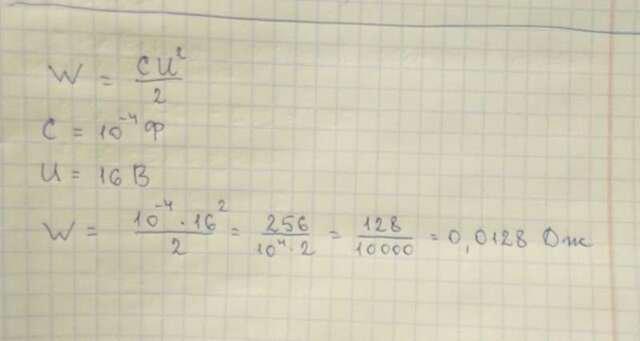 W = CU²/2
C = 10⁻⁴ Ф
U = 16 В
W = 10⁻⁴ · 16²/2 = 256/10⁴ · 2 = 128/10000 = 0,0128 Дж